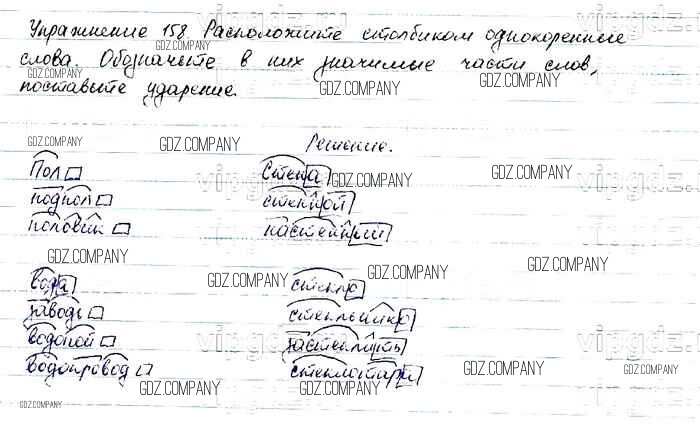 Упражнение 158. Расположите столбиком однокоренные
слова. Обозначьте в них значимые части слов,
поставьте ударение.
Решение.
Пол стена
подпол стенной
половик настенный
вода стекло
заводь стекльшко
водопой застеклить
водопровод стеклотара
GDZ.COMPANY
vipgdz.ru